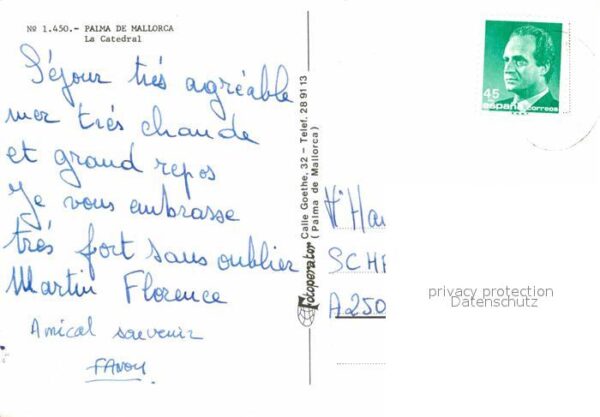 Nº 1.450.- PALMA DE MALLORCA
La Catedral
Séjour très agréable
mer très chaude
et grand repos
Je vous embrasse
très fort sans oublier
Martin Florence
Amical souvenir
Fotoperator Calle Goethe, 32 - Telef. 28 91 13
(Palma de Mallorca)
45
españa correos
SCHE
A250
privacy protection
Datenschutz